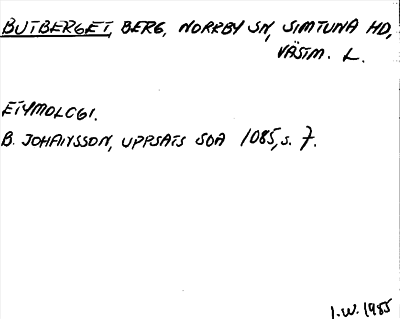 BUTBERGET, BERG, NORRBY SN, SIMTUNA HD,
VÄSTM. L.
ETYMOLOGI.
B. JOHANSSON, UPPSATS SOA 1085, s. 7.
I.W. 1985